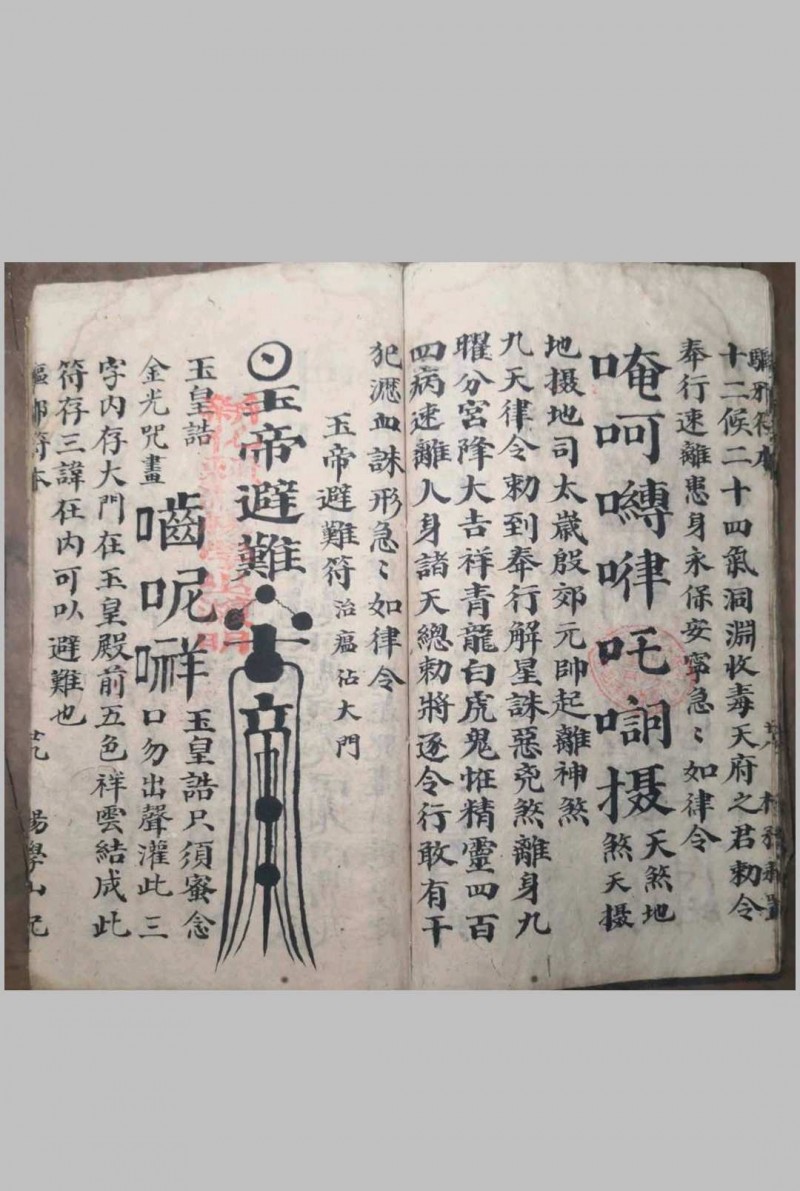 十二候二十四氣洞淵收毒天府之君勅令
奉行速離患身永保安寧急〻如律令
唵呵嚩㘄吒𠸎摄
天煞地
煞天摄
地摄地司太歲殷郊元帥起離神煞
九天律令勅到奉行解星誅惡兇煞離身九
曜分宮降大吉祥青龍白虎鬼恠精靈四百
四病速離人身諸天總勅將逐令行敢有干
犯瀝血誅形急〻如律令
玉帝避難符 治瘟沾大門
玉帝避難
帝
玉皇誥 玉皇誥只須蜜念
金光咒畫 嚙呢 口勿出聲灌此三
字內存大門在玉皇殿前五色祥雲結成此
符存三諱在內可以避難也
瘟部符本 廿九